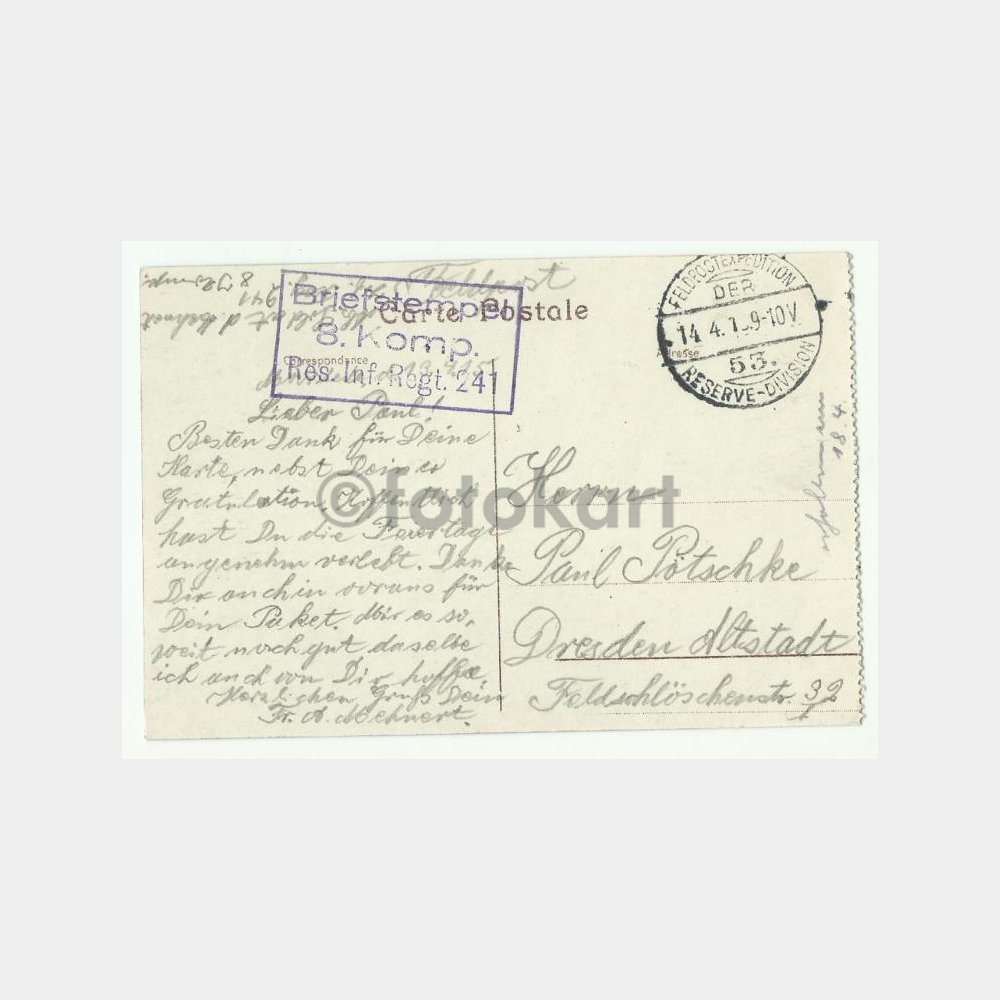 Feldpost
Carte Postale
Briefstempel
8. Komp.
Res. Inf. Regt. 241
Correspondance
Adresse
FELDPOSTEXPEDITION
DER
14. 4. 1 9-10V.
53.
RESERVE-DIVISION
Lieber Paul!
Besten Dank für Deine
Karte, nebst Deiner
Gratulation.
hast Du die Feiertage
angenehm verlebt. Danke
Dir auch in voraus für
Dein Paket. Mir es so,
weit noch gut daselbe
ich auch von Dir hoffe.
Herzlichen Gruß Dein
Fr. A. Mehnert.
Herrn
Paul Pötschke
Dresden Altstadt
Feldschlöschenstr. 32
18 4.
241
©fotokart